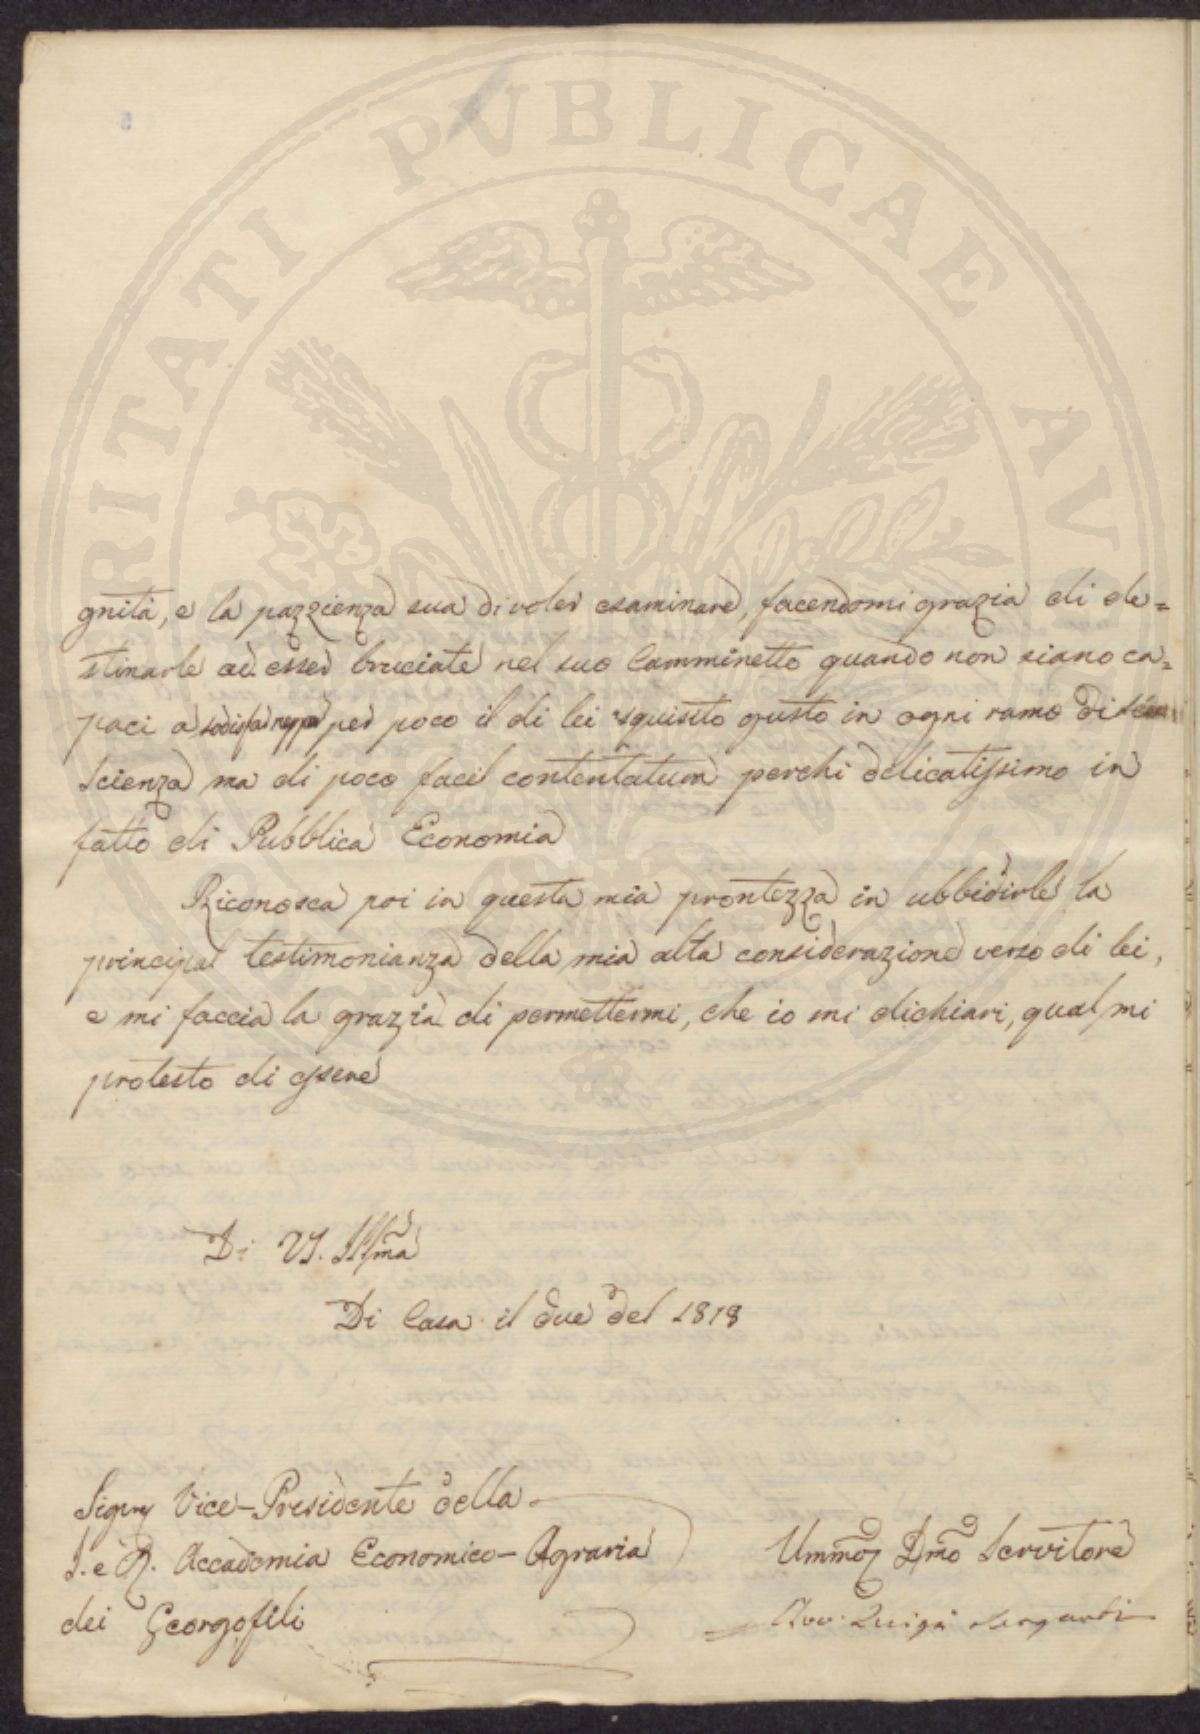 PUBLICAE
RITATI
AV
gnità, e la pazzienza sua di voler esaminare, facendomi grazia di de=
stinarle ad esser bruciate nel suo Camminetto quando non siano ca=
paci a sodisfar neppur per poco il di lei squisito gusto in ogni ramo di
Scienza ma di poco facil contentatura perchè delicatissimo in
fatto di Pubblica Economia
Riconosca poi in questa mia prontezza in ubbidirle la
principal testimonianza della mia alta considerazione verso di lei,
e mi faccia la grazia di permettermi, che io mi dichiari, qual mi
protesto di essere
Di VS. Illma
Di Casa il due del 1818
Sigre Vice-Presidente della
I. e R. Accademia Economico-Agraria
dei Georgofili
Ummo Dmo Servitore
Avv. Luigi